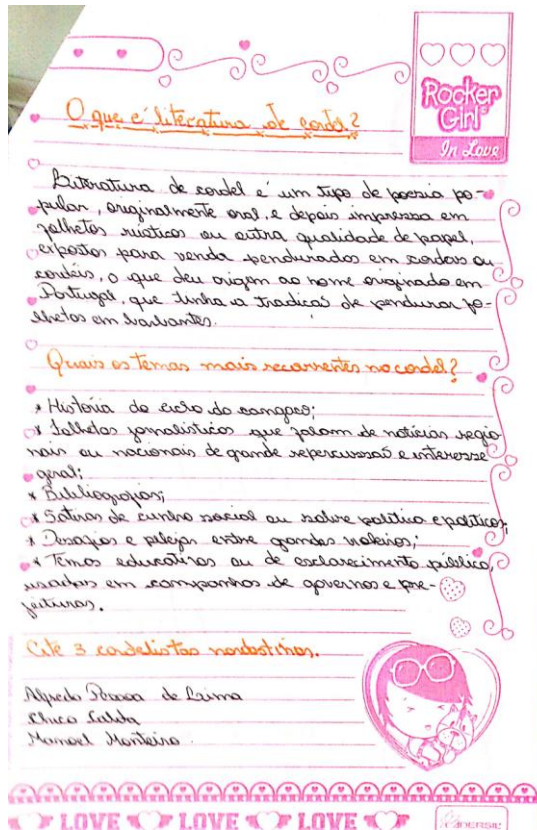 Rocker
Girl
In Love
O que é literatura de cordel?
Literatura de cordel é um tipo de poesia po-
pular, originalmente oral, e depois impressa em
folhetos rústicos ou outra qualidade de papel,
expostos para venda pendurados em cordas ou
cordéis, o que deu origem ao nome originado em
Portugal, que tinha a tradição de pendurar fo-
lhetos em barbantes.
Quais os temas mais recorrentes no cordel?
* História do ciclo do cangaço;
* Folhetos jornalísticos que falam de notícias regio-
nais ou nacionais de grande repercussão e interesse
geral;
* Bibliografias;
* Sátiras de cunho social ou sobre política e políticos;
* Desafios e pelejas entre grandes violeiros;
* Temas educativos ou de esclarecimento público,
usados em campanhas de governos e pre-
feituras.
Cite 3 cordelistas nordestinos.
Alfredo Pessoa de Lima
Chico Salda
Manoel Monteiro
LOVE LOVE LOVE